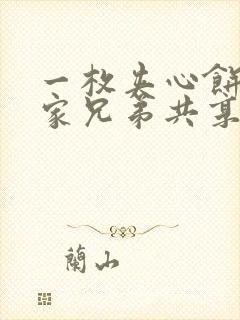 一枚夹心餅
家兄弟共享
蘭山